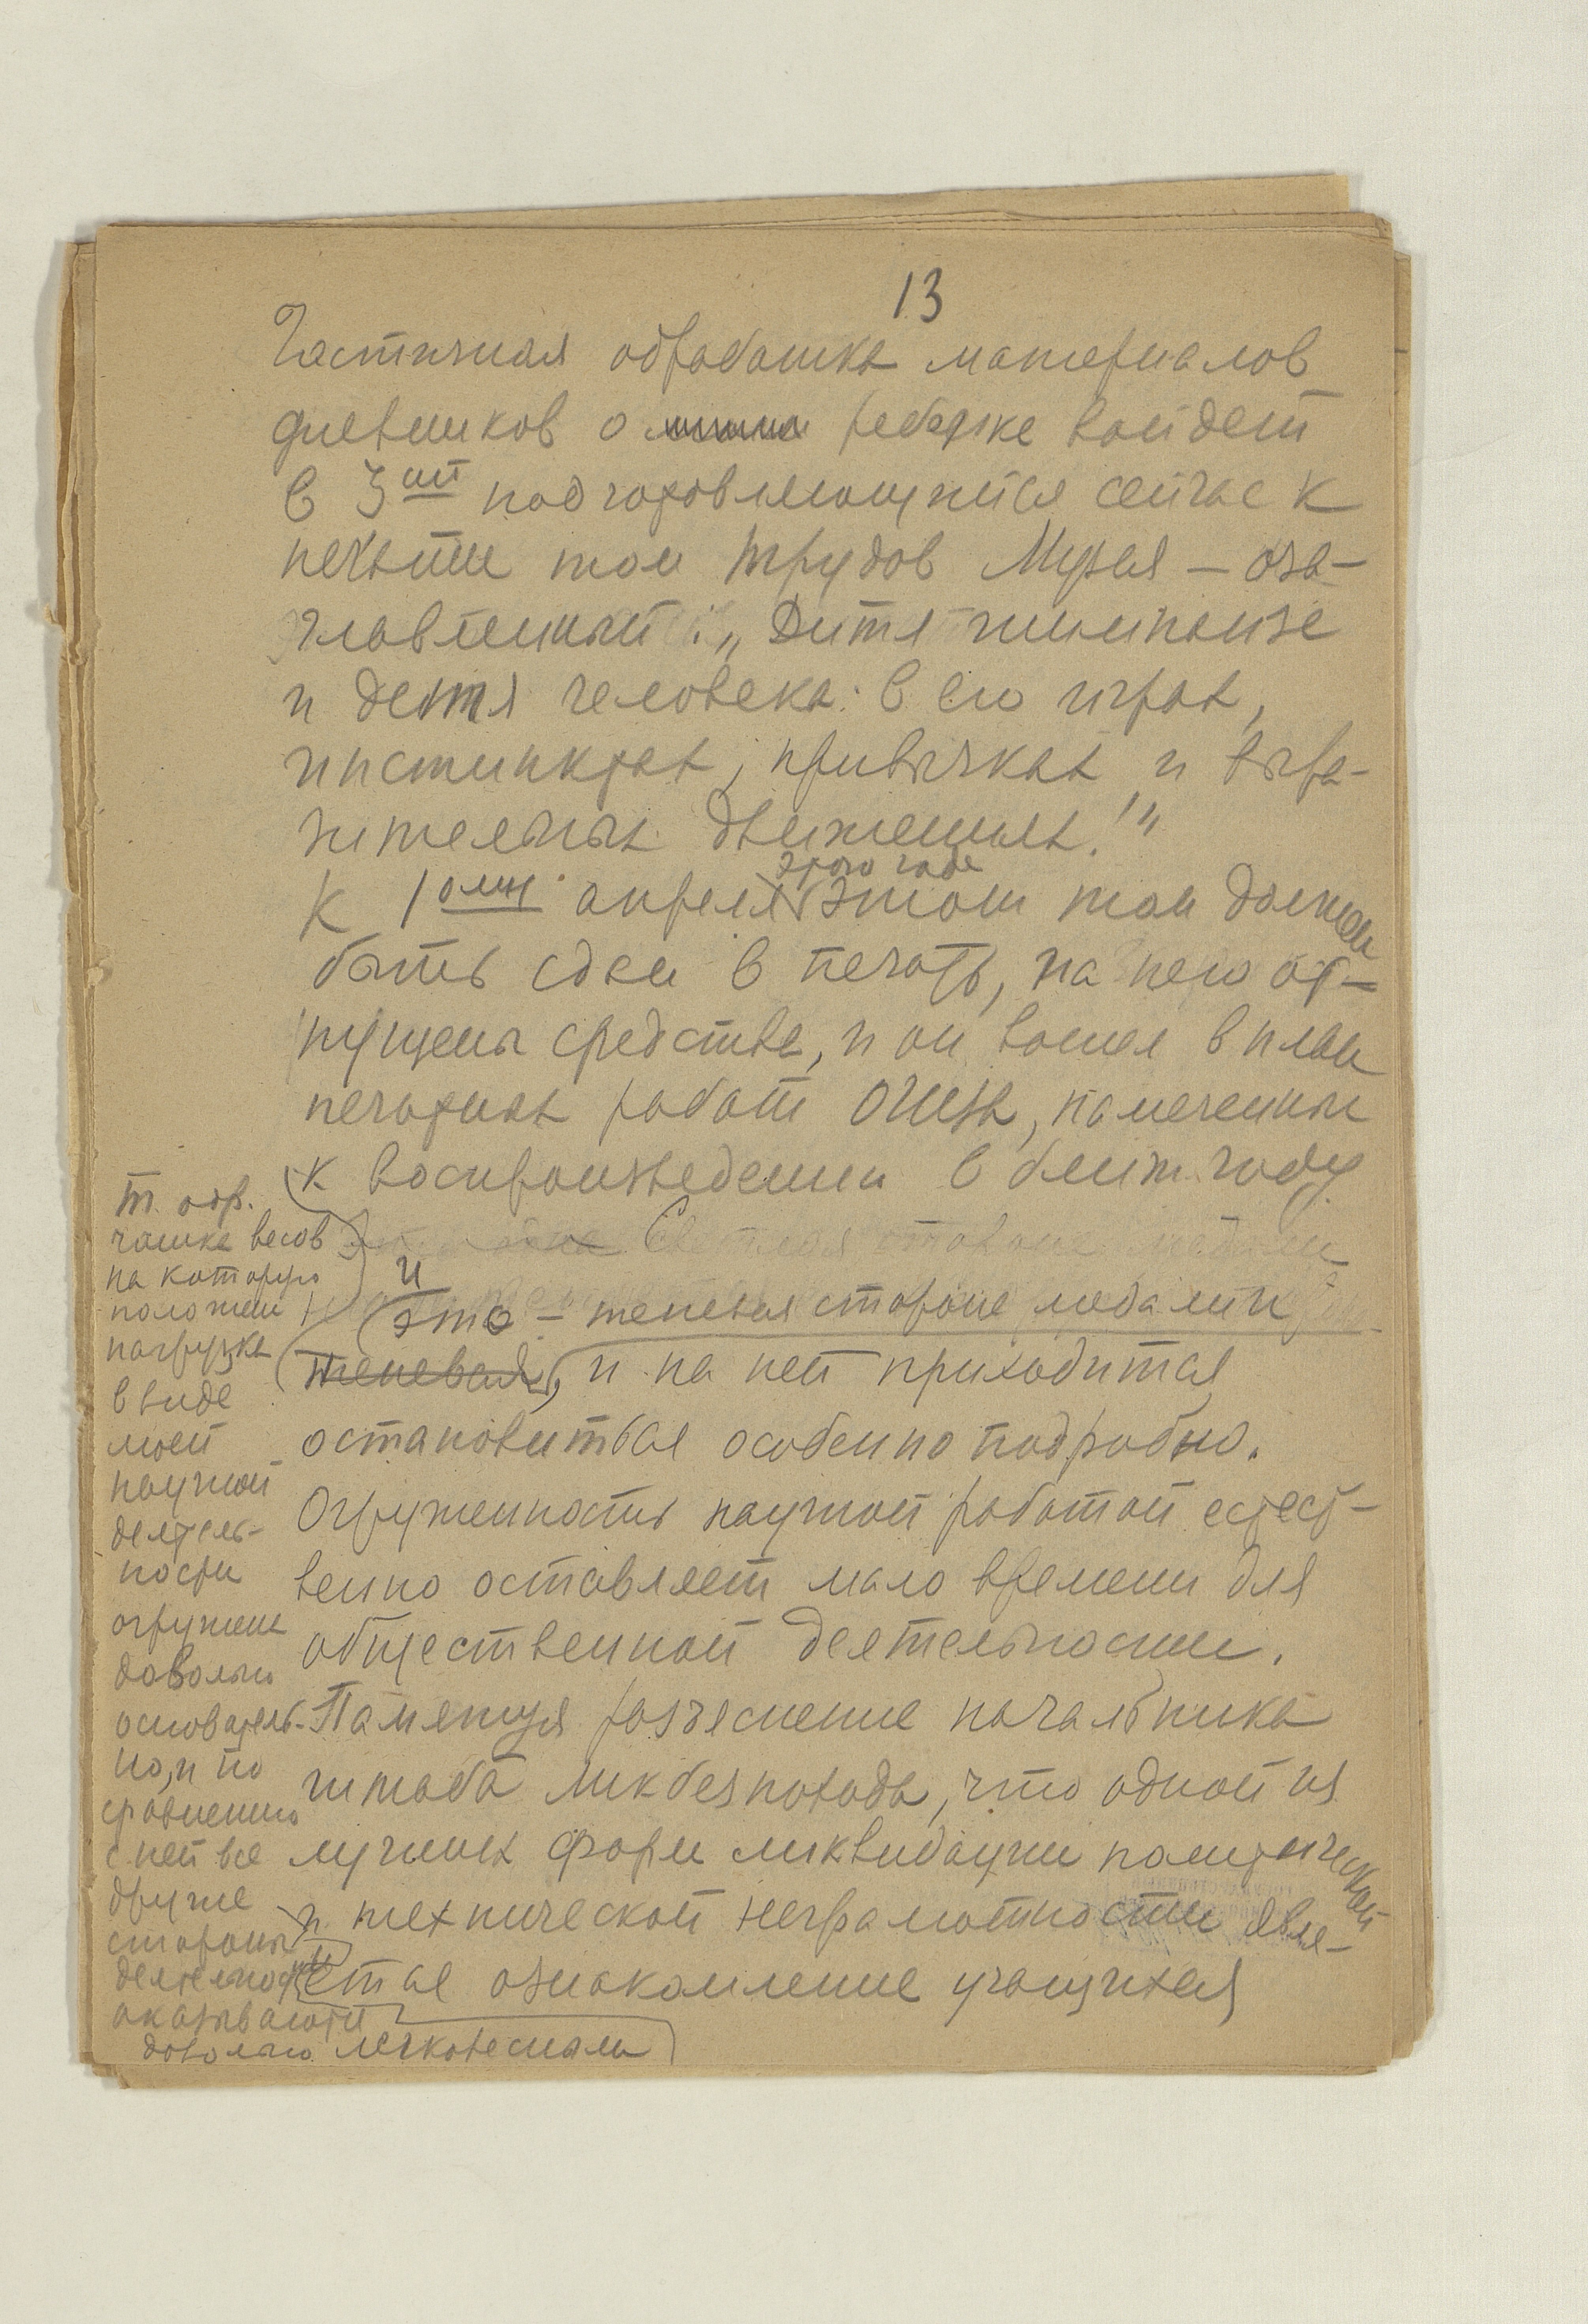 13
Частичная обработка материалов
дневников о ребенке войдет
в 3ий подготовляющийся сейчас к
печати том трудов Музея – оза-
главленный: „Дитя шимпанзе
и дитя человека в его играх,
инстинктах, привычках и выра-
зительных движениях!"
этого года
К 1ому апреля этот том должен
быть сдан в печать, на него от-
пущены средства, и он вошел в план
печатных работ ОГИЗа, намеченных
к воспроизведению в 6 году.
Светлая сторона медали
и
это – теневая сторона медали
теневая, и на ней приходится
остановиться особенно подробно.
Огруженность научной работой естест-
венно оставляет мало времени для
общественной деятельности.
Памятуя разъяснение начальника
штаба ликбезпохода, что одной из
лучших форм ликвидации политической
и технической неграмотности явля-
ется ознакомление учащихся
чашка весов
на которую
положен
нагрузка
в виде
моей
научной
деятель-
ности
огружена
довольно
основатель-
но, и по
сравнению
с ней все
другие
стороны
деятельности
оказываются
довольно легковесными